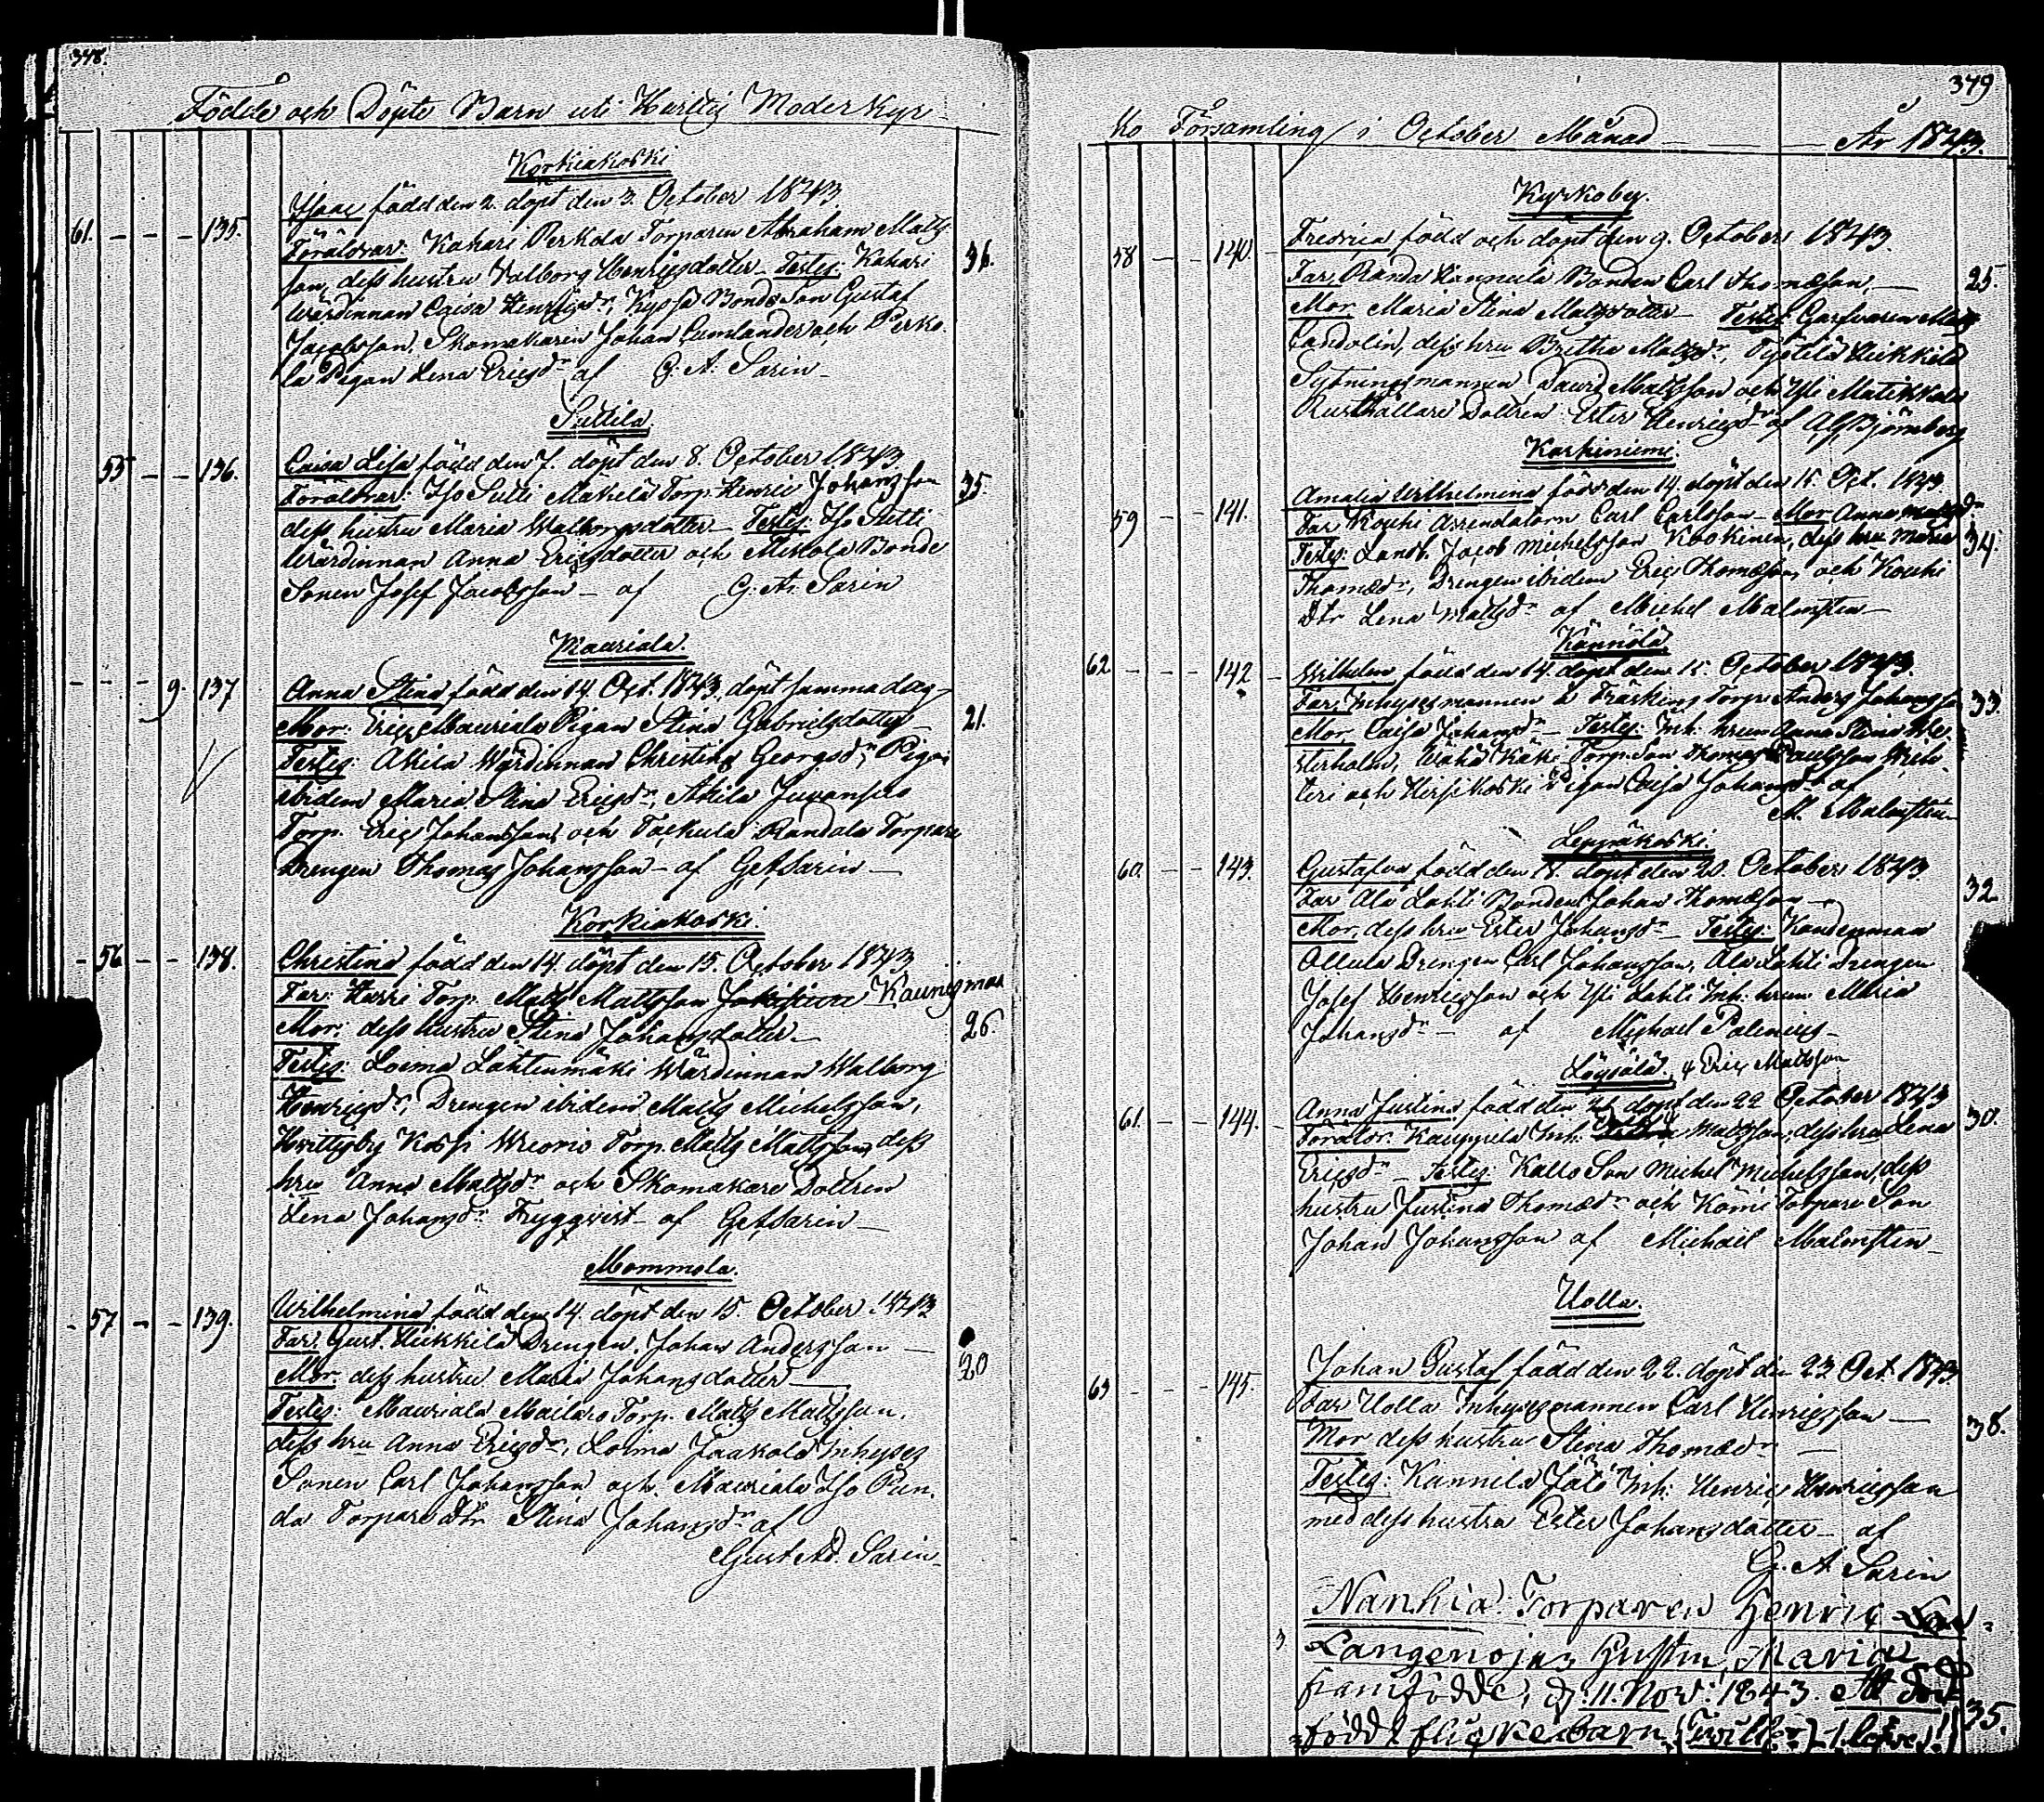 378.
Födde och Döpte Barn uti Huittis Moderkyr-
Korkiakoski
61. 135. Isaac född den 2. döpt den 3. October 1843.
Föräldrar: Kahari Perkola Torparen Abraham Mats
son, dess hustru Valborg Henrigsdotter - Testes: Kahari 36.
Wärdinnan Caisa Henrigsdr, Bonde Son Gustaf
Jacobsson, Skomakaren Johan och Perko
la Pigan Lena Ericsdr af G. A. Sarin
Suttila
55 136. Caisa Lisa född den 7. döpt den 8. October 1843
Föräldrar: Iso Sutti Makelä Torp. Henric Johansson 35.
dess hustru Maria Walborgsdotter - Testes: Iso Sutti
Wärdinnan Anna Ericsdotter och Bonde
Sonen Josef Jacobsson - af G. A. Sarin
Mauriala.
9. 137 Anna Stina född den 14 Oct. 1843. döpt samma dag
Mor: Eric Mauriala Pigan Stina Gabrielsdotter 21.
Testes: Akila Wärdinnan Christina Georgsdr, Pigan
ibidem Maria Stina Ericsdr, Akila
Torp. Eric Johansson, och Takkula Randala Torpare
Drengen Thomas Johansson - af G. A. Sarin
Korkiakoski.
56 138. Christina född den 14. döpt den 15. October 1843
Far: Harri Torp. Matts Mattsson Kaunismaa
Mor: dess hustru Stina Johansdotter 26.
Testes: Loima Lähtenmäki Wärdinnan Walborg
Henrigsdr, Drengen ibidem Matts Michelsson,
Hvittisby Kossi Torp. Matts Mattsson, dess
hru Anna Mattsdr och Skomakare Dottren
Lena Johansdr Tryggvist - af G. A. Sarin
Mommola.
57 139. Wilhelmina född den 14. döpt den 15. October 1843
Far: Gust. Heikkilä Drengen Johan Andersson
Mor: dess hustru Maria Johansdotter 20
Testes: Mauriala Maila Torp. Matts Mattsson,
dess hru Anna Ericsdr, Loima Jaakola Inhyses
Sonen Carl Johansson och Mauriala Iso Pun
da Torpare dtr Stina Johansdr af
Gust. Ad. Sarin
379
ko Församling i October Månad År 1843.
Kyrkoby.
58 140. Fredrica född och döpt den 9. October 1843.
Far, Randa Hannula Bonden Carl Thomasson, 25.
Mor, Maria Stina Mattsdotter - Testes: Garfvaren Matts
Landolin, dess hru Britha Mattsdr, Heikkilä
Sytningsmannen David Mattsson och Yli Matikkala
Rusthållare Dottren Ester Henrigsdr af Björnberg
Karhiniemi.
59 141. Amalia Wilhelmina född den 14. döpt den 15. Oct. 1843.
Far Kouhi Arrendatorn Carl Carlsson - Mor Anna Mattsdr
Testes: Landb. Jacob Michelsson dess hru Maria 34.
Thomædr, Drengen ibidem Eric Thomasson, och Kouhi
Dtr Lena Mattsdr af Michel Malmsten
Kännölä
62 142 Wilhelm född den 14. döpt den 15. October 1843.
Far, Inhysesmannen Torp. Anders Johansson 33.
Mor, Caisa Johansdr - Testes: Inh. hrun Anna Stina We
sterholm, Torp. Son Thomas Paulsson
och Hirsikoski Pigan Caisa Johansdr af
M. Malmsten
Leppäkoski.
60. 143. Gustafva född den 18. döpt den 20. October 1843
Far Ala Lahti Bonden Johan Thomasson 32
Mor, dess hru Ester Johansdr - Testes:
Ollula Drengen Carl Johansson, Ala Lahti Drengen
Josef Henrigsson och Yli Lahti Inh. hrun Maria
Johansdr - af Michael Polenius
Löysälä, Eric Mattsson
61. 144. Anna Justina född den 21. döpt den 22 October 1843
Föräldr. Inh. Mattsson, dess hru Lena 30.
Ericsdr - Testes: Kallo Son Michel Michelsson, dess
hustru Justina Thomædr och Torpare Son
Johan Johansson af Michaël Malmsten
Uolla.
63 145. Johan Gustaf född den 22. döpt den 23 Oct. 1843.
Far Uolla Inhysesmannen Carl Henrigsson
Mor dess hustru Stina Thomædr 38.
Testes: Kannila Inh: Henric Henrigsson
med dess hustru Ester Johansdotter - af
G. A. Sarin
Nanhia: Torparen Henric
Langenojas Hustru, Maria
framfödde, d. 11. Nov: 1843. Ett död
född flickebarn 35.